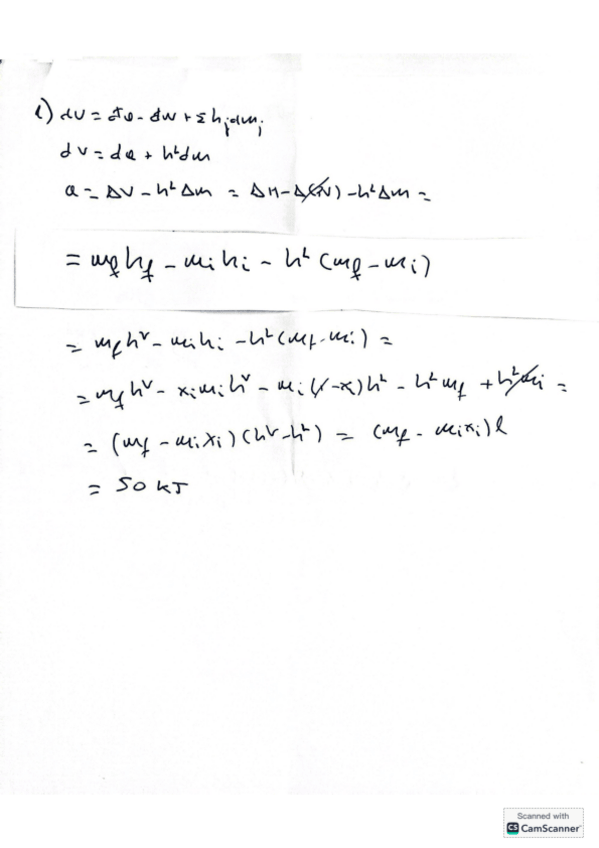 1) dU = đQ - đW + Σ hjdmj
dU = dQ + h^L dm
Q = ΔU - h^L Δm = ΔH - Δ(PV) - h^L Δm =
= mf hf - mi hi - h^L (mf - mi)
= mf h^V - mi hi - h^L (mf - mi) =
= mf h^V - xi mi h^V - mi (1 - x) h^L - h^L mf + h^L mi =
= (mf - mi xi) (h^V - h^L) = (mf - mi xi) l
= 50 kJ
Scanned with
CS CamScanner